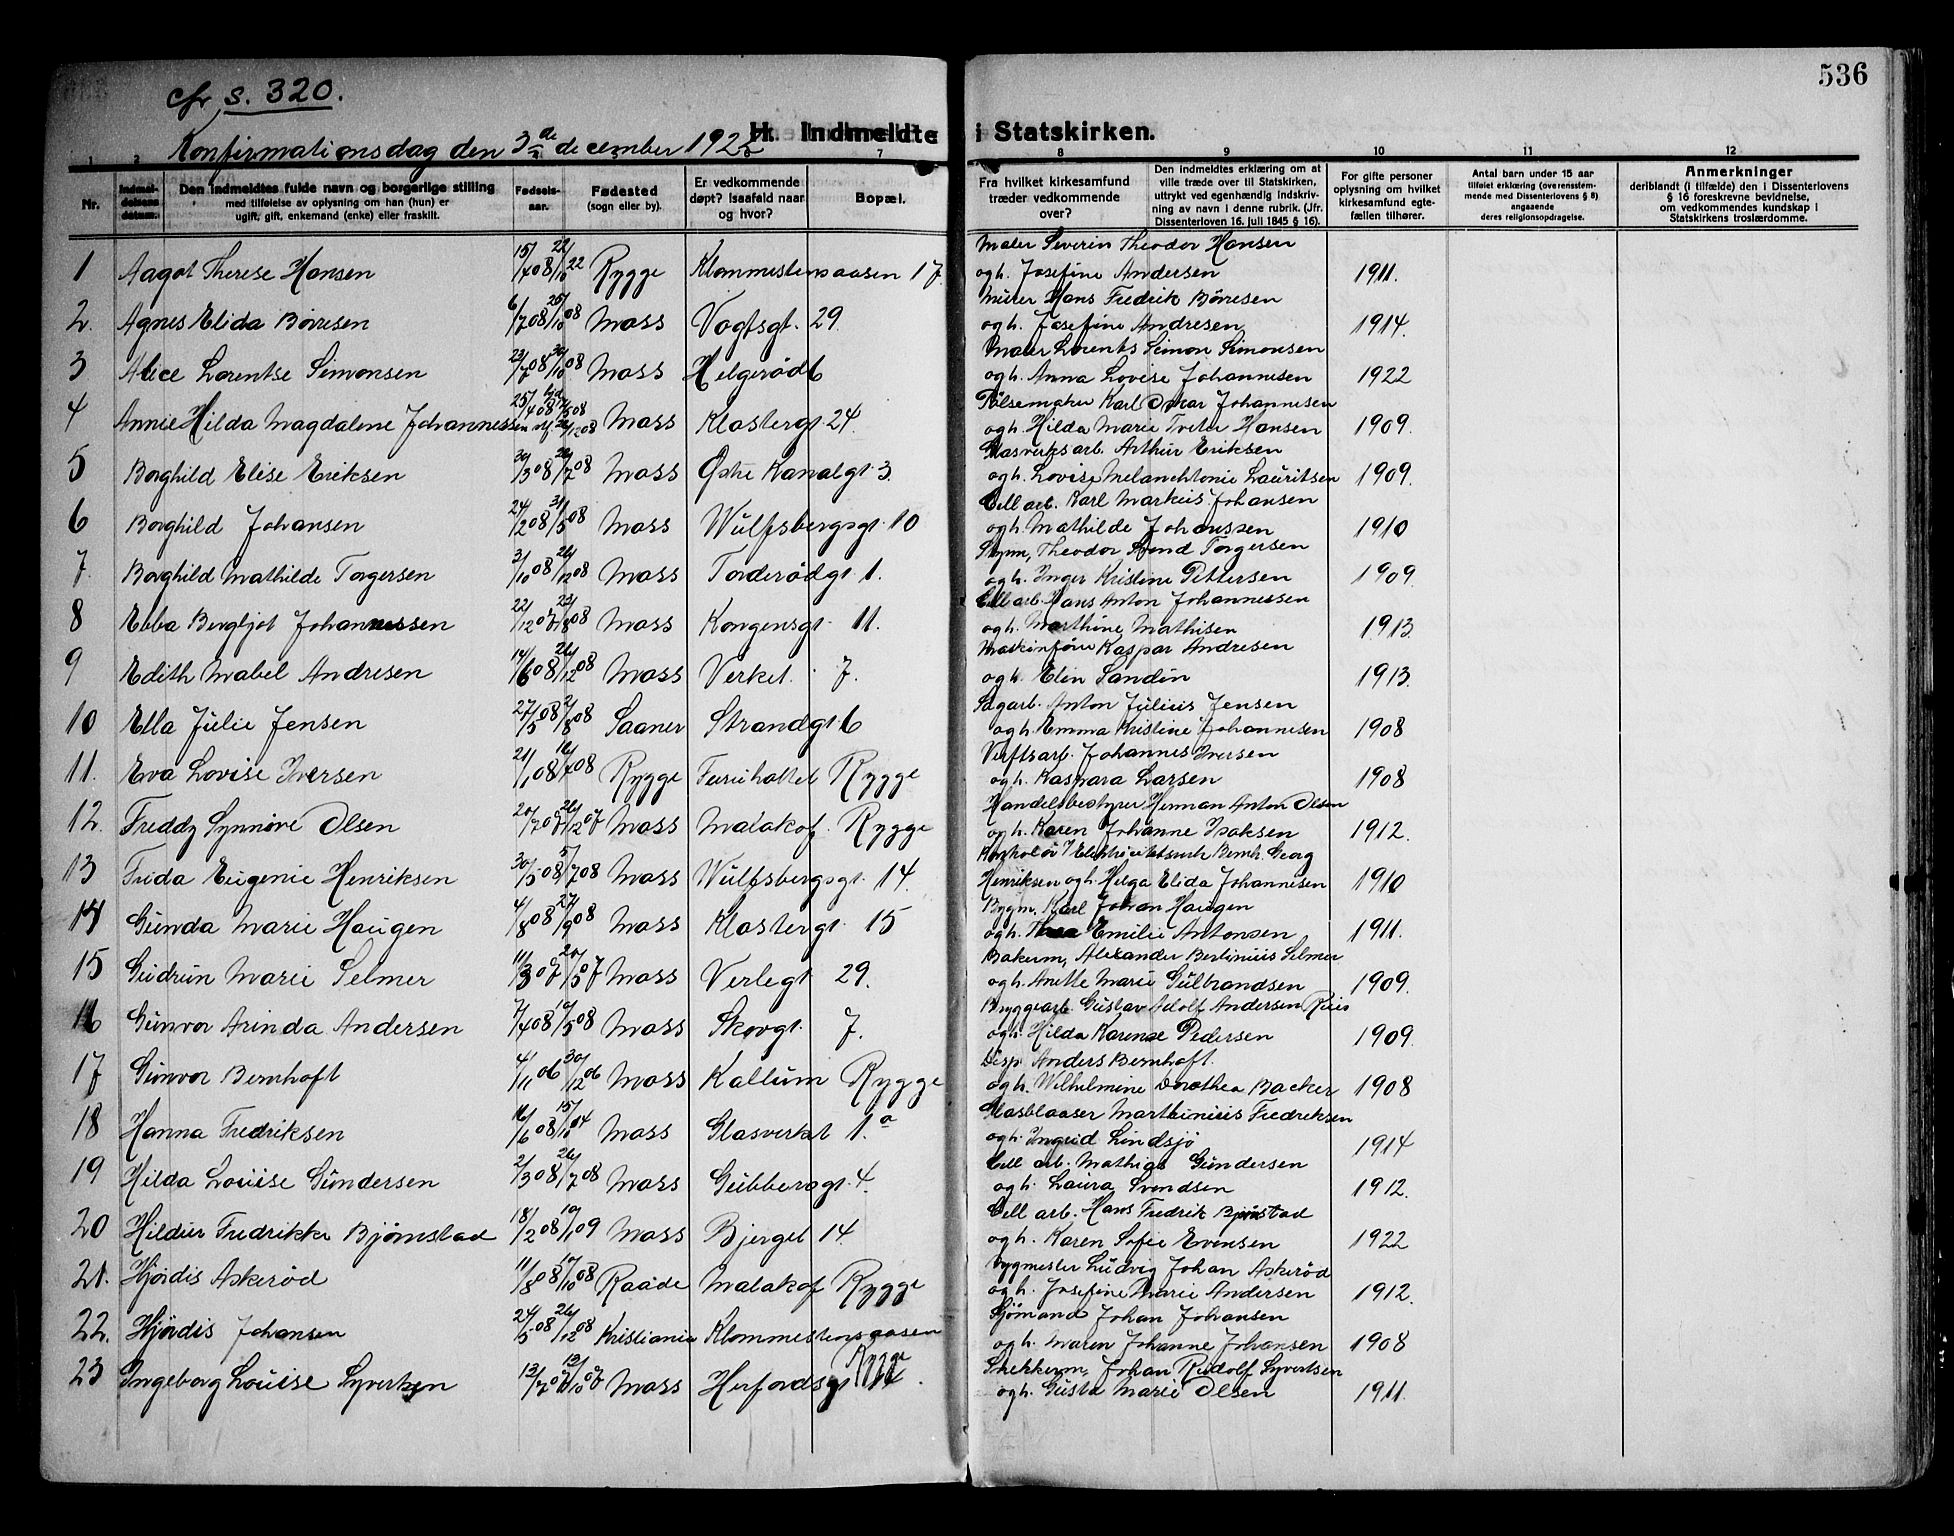 536
cfr s. 320.
Konfirmationsdag den 3de december 1922
H. Indmeldte i Statskirken.
1 2 7 8 9 10 11 12
Nr. Indmeldelsens datum. Den indmeldtes fulde navn og borgerlige stilling med tilføielse av oplysning om han (hun) er ugift, gift, enkemand (enke) eller fraskilt. Fødselsaar. Fødested (sogn eller by). Er vedkommende døpt? Isaafald naar og hvor? Bopæl. Fra hvilket kirkesamfund træder vedkommende over? Den indmeldtes erklæring om at ville træde over til Statskirken, uttrykt ved egenhændig indskrivning av navn i denne rubrik. (Jfr. Dissenterloven 16. juli 1845 § 16). For gifte personer oplysning om hvilket kirkesamfund egtefællen tilhører. Antal barn under 15 aar tilføiet erklæring (overensstemmende med Dissenterlovens § 8) angaaende deres religionsopdragelse. Anmerkninger deriblandt (i tilfælde) den i Dissenterlovens § 16 foreskrevne bevidnelse, om vedkommendes kundskap i Statskirkens troslærdomme.
1 Aagot Therese Hansen 15/4 08 22/10 22 Rygge Klommestensaasen 17. Maler Severin Theodor Hansen
ogh. Josefine Andersen 1911.
2. Agnes Elida Børresen 6/7 08 25/10 08 Moss Vogtsgt. 29. Murer Hans Fredrik Børresen
ogh. Josefine Andresen 1914.
3 Alice Lorentse Simonsen 23/7 08 Moss Helgerød 6 Maler Lorents Simon Simonsen
ogh. Anna Lovise Johannesen 1922
4 Annie Hilda Magdalene Johannessen 25/4 08 Moss Klostergt. 24. Pølsemaker Karl Oskar Johannesen
ogh. Hilda Marie Hansen 1909.
5 Borghild Elise Eriksen 30/3 08 26/7 08 Moss Østre Kanalgt. 3. Glasverksarb. Arthur Eriksen
ogh. Lovise Melanchtonie Lauritsen 1909.
6 Borghild Johansen 24/2 08 31/5 08 Moss Wulfsbergsgt. 10 Cell arb. Karl Markus Johansen
ogh. Mathilde Johanssen 1910
7. Borghild Mathilde Torgersen 3/10 08 26/12 08 Moss Torderødgt. 1. Theodor Torgersen
ogh. Inger Kristine Pettersen 1909.
8 Ebba Bergljot Johannessen 22/12 07 23/8 08 Moss Kongensgt. 11. Cell arb. Hans Anton Johannessen
ogh. Marthine Mathisen 1913.
9 Edith Mabel Andresen 14/6 08 26/12 08 Moss Verket. 7. Maskinfører Kaspar Andresen
ogh. Elin Sandin 1913.
10 Ella Julie Jensen 27/5 08 2/8 08 Saaner Strandgt. 6 Sagarb. Anton Julius Jensen
ogh. Emma Kristine Johannesen 1908
11. Eva Lovise Iversen 21/1 08 Rygge Furuholtet Rygge Verftsarb. Johannes Iversen
ogh. Kaspara Larsen 1908
12. Freddy Synnøve Olsen 20/7 07 26/12 07 Moss Malakof. Rygge Handelsbestyrer Herman Anton Olsen
ogh. Karen Johanne Isaksen 1912.
13 Frida Eugenie Henriksen 30/5 08 5/7 08 Moss Wulfsbergsgt. 14. Bernh. Georg
Henriksen ogh. Helga Elida Johannesen 1910
14 Gunda Marie Haugen 4/8 08 27/9 08 Moss Klostergt. 15 Bygm. Karl Johan Haugen
ogh. Thea Emilie Antonsen 1911.
15 Gudrun Marie Selmer 11/3 07 20/5 07 Moss Verlegt 29. Bakerm. Alexander Bertinius Selmer
ogh. Anette Marie Gulbrandsen 1909.
16 Gunvor Arinda Andersen 7/4 08 10/5 08 Moss Skovgt. 7. Bryggearb. Gustav Adolf Andersen
ogh. Hilda Karense Pedersen 1909.
17 Gunvor Bernhoft 4/11 06 30/12 06 Moss Kallum Rygge Disp. Anders Bernhoft.
ogh. Wilhelmine Dorothea Backer 1908
18 Hanna Fredriksen 16/6 08 Moss Glasverket 1.a Glasblaaser Marthinius Fredriksen
ogh. Ingrid Lindsjö 1914
19 Hilda Louise Gundersen 2/3 08 26/7 08 Moss Gubberogt. 4. Cell arb. Mathias Gundersen
ogh. Laura Svendsen 1912.
20 Hildur Fredrikke Bjørnstad 18/2 08 10/1 09 Moss Bjerget 14 Cell arb. Hans Fredrik Bjørnstad
ogh. Karen Sofie Evensen 1922
21. Hjørdis Askerød 11/8 08 Raade Malakof Rygge Bygmester Ludvig Johan Askerød
ogh. Josefine Marie Andersen 1912.
22. Hjørdis Johansen 24/5 08 26/12 08 Kristiania Klommestensaasen Rygge Sjømand Johan Johansen
ogh. Maren Johanne Johansen 1908
23 Ingeborg Louise Syvertsen 12/7 07 13/10 07 Moss Herfordsgt. Snekkerm. Johan Rudolf Syvertsen
ogh. Gusta Marie Olsen 1911.